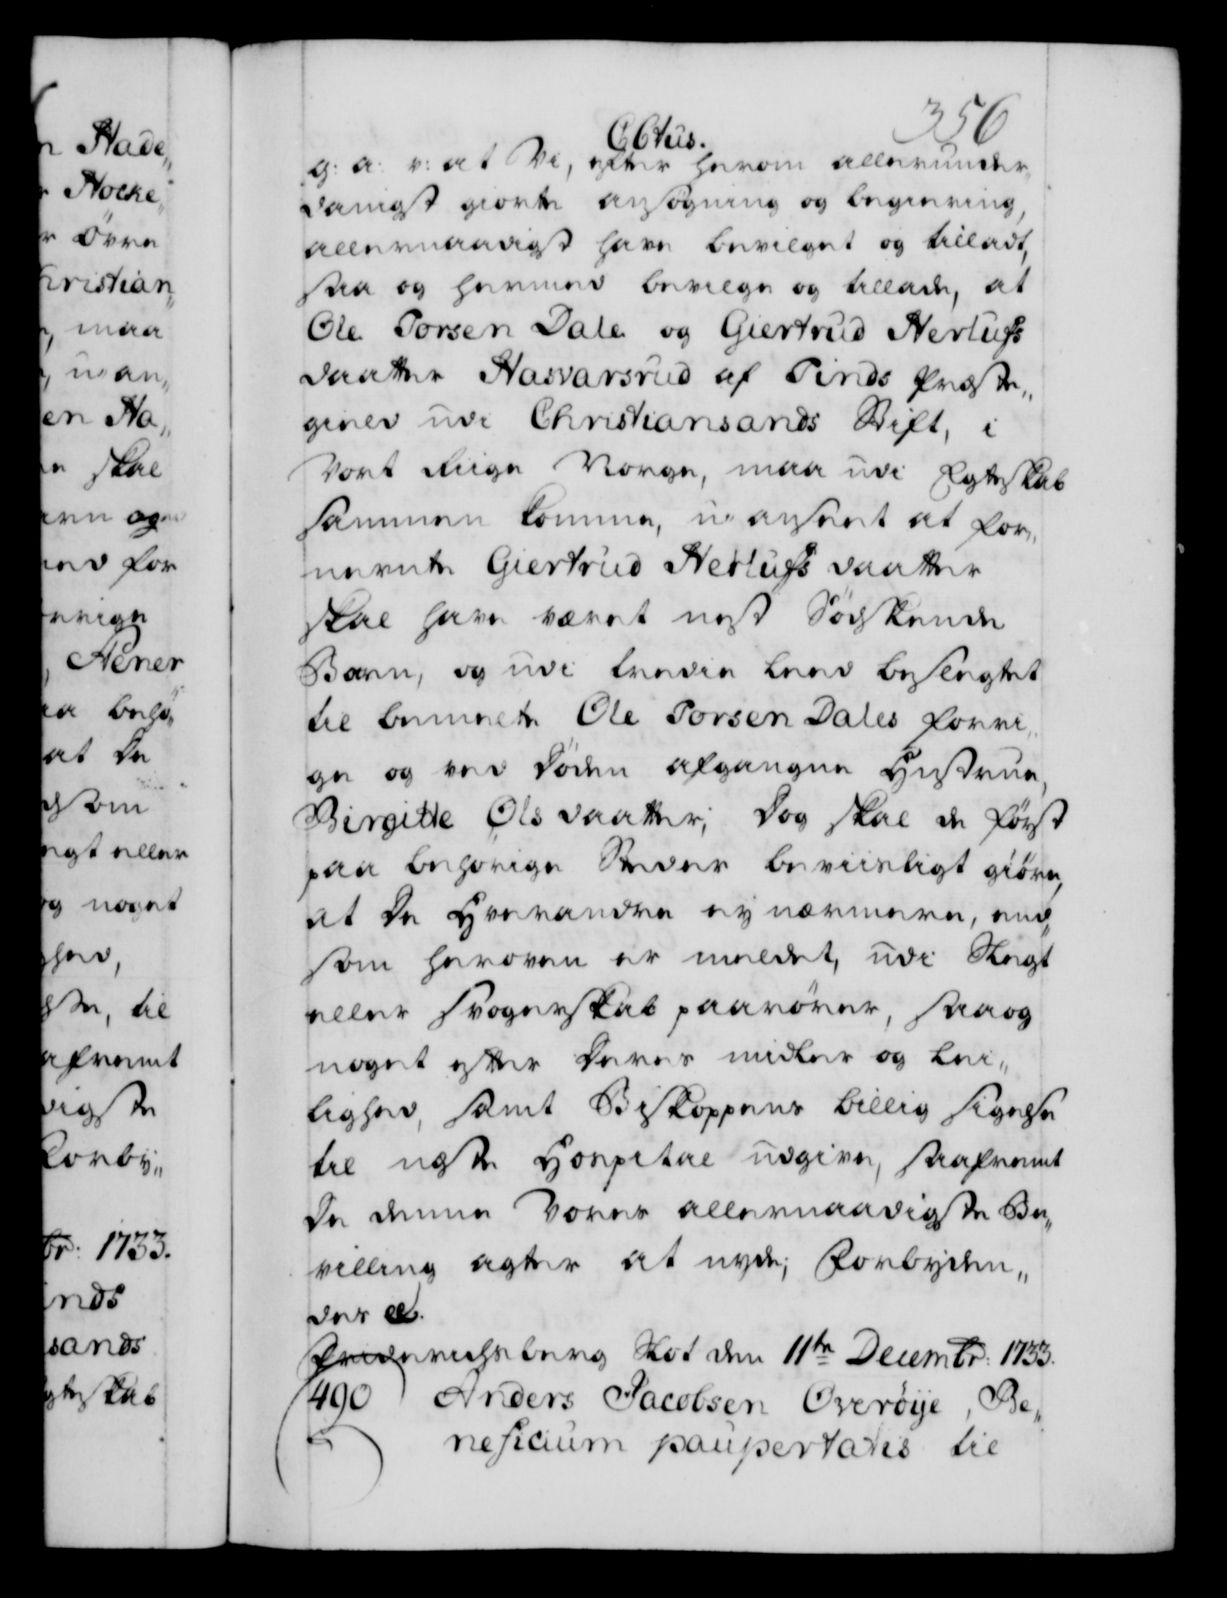 356
C6tus.
g: a: v: at Vi, efter herom allerunder„
danigst giorte ansøgning og begiering,
allernaadigst have bevilget og tilladt,
saa og hermed bevilge og tillade, at
Ole Torsen Dale og Giertrud Herlufs
daatter Hasvarsrud af Tinds Præste„
gield udi Christiansands Stift, i
Vort Riige Norge, maa udi Egteskab
sammen komme, u-anseet at for„
nevnte Giertrud Herlufs daatter
skal have været nest Sødskende
Barn, og udi tredie Leed beslegtet
til bemeelte Ole Torsen Dales forri„
ge og ved Døden afgangne Hustrue,
Birgitte Ols daatter; Dog skal de først
paa behørige Steder beviisligt giøre,
at De Hverandre ey nærmere, end
som heroven er meldet, udi Slegt
eller Svogerskab paarører, saa og
noget efter Deres midler og Lei„
lighed, samt Biskoppens billig sigelse
til neste Hospital udgive, saafremt
De denne Vores allernaadigste Be„
villing agter at nyde; Forbyden„
des &c.
Friderichsberg Slot den 11te Decembr: 1733.
490 Anders Jacobsen Overøije, Be„
neficium paupertatis til
n Hade„
r Hocke„
r Øvre
hristian„
, maa
, u-an„
en Ha„
skal
ern og
ed for
errige
, Aener
aa behø„
at De
som
egt eller
og noget
ghed,
ste, til
afremt
digste
Forby„
br: 1733.
inds
sands
gteskab